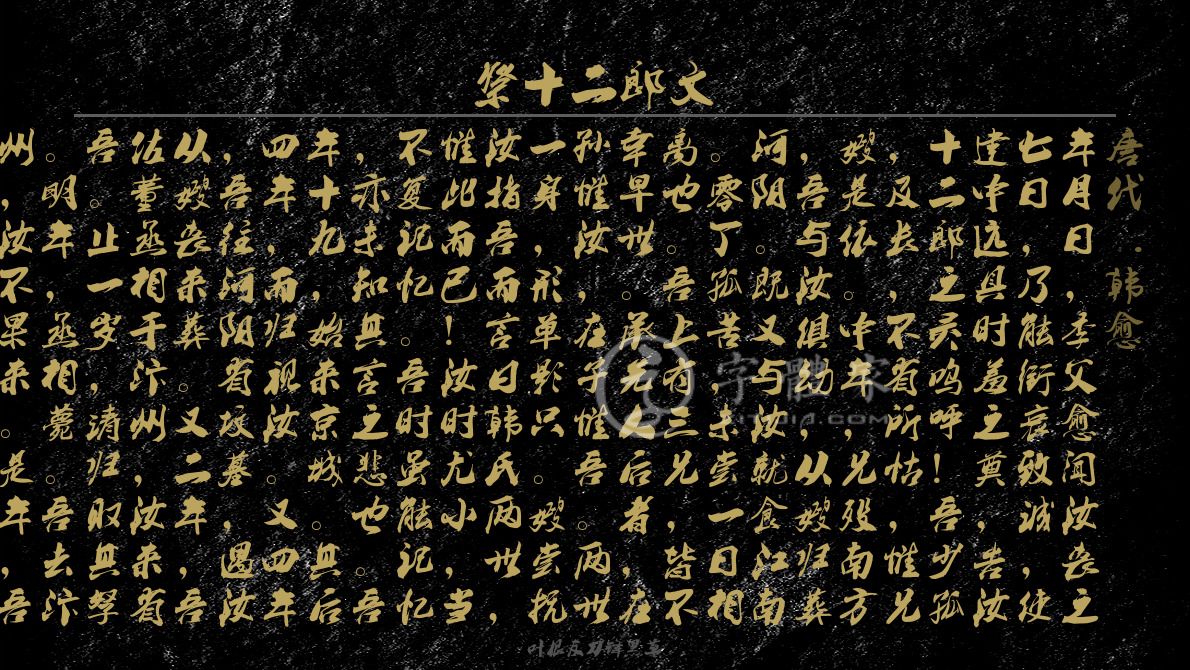 祭十二郎文
唐代·韩愈
年月日，季父愈闻汝丧之
七日，乃能衔哀致诚，使
建中远具时羞之奠，告汝
十二郎之灵呜呼！吾少孤
，及长，不省所怙，惟兄
嫂是依。中年，兄殁南方
，吾与汝俱幼，从嫂归葬
河阴。既又与汝就食江南
。零丁孤苦，未尝一日相
离也。吾上有三兄，皆不
幸早世。承先人后者，在
孙惟汝，在子惟吾。两世
一身，形单影只。嫂尝抚
汝指吾而言曰韩氏两世，
惟此而已！汝时尤小，当
不复记忆。吾时虽能记忆
，亦未知其言之悲也。吾
年十九，始来京城。其后
四年，而归视汝。又四年
，吾往河阳省坟墓，遇汝
从嫂丧来葬。又二年，吾
佐董丞相于汴州，汝来省
吾。止一岁，归取其孥
。明年，丞相薨。吾去汴
州，汝不果来。是年，吾
字體家
ZITIJIA.COM
叶根友刀锋黑草